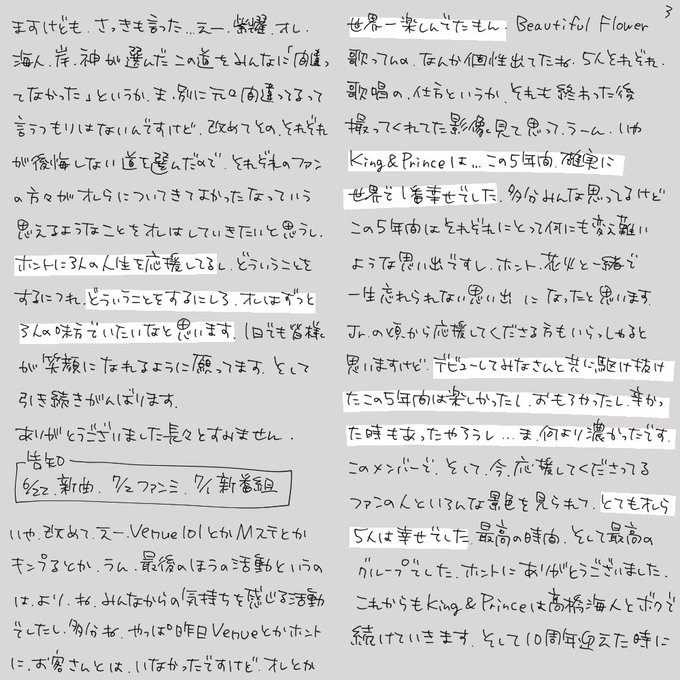 3
ますけども、さっきも言った…えー、紫耀、オレ、
海人、岸、神が選んだこの道をみんなに「間違っ
てなかった」というか、ま、別に元々間違ってるって
言うつもりはないんですけど、改めてその、それぞれ
が後悔しない道を選んだので、それぞれのファン
の方々がオレらについてきてよかったなっていう
思えるようなことをオレはしていきたいと思うし、
ホントに3人の人生を応援してるし、どういうことを
するにつれ、どういうことをするにしろ、オレはずっと
3人の味方でいたいなと思います。1日でも皆様
が笑顔になれるように願ってます。として
引き続きがんばります。
ありがとうございました長々とすみません。
告知
6/22、新曲、7/2ファンミ、7/1新番組
いや、改めて、えー、Venue101とかMステとか
キンプるとか、うん、最後のほうの活動というの
は、より、ね、みんなからの気持ちを感じる活動
でしたし、多分ね、やっぱ昨日Venueとかホント
に、お客さんとは、いなかったですけど、オレとか
世界一楽しんでたもん、Beautiful Flower
歌ってんの。なんか個性出てたね、5人それぞれ。
歌唱の、仕方というか、それも終わった後
撮ってくれてた影像見て思って、うーん、いや
King&Princeは…この5年間、確実に
世界で1番幸せでした。多分みんな思ってるけど
この5年間はそれぞれにとって何にも変え難い
ような思い出ですし、ホント、花火と一緒で
一生忘れられない思い出になったと思います。
Jr.の頃から応援してくださる方もいらっしゃると
思いますけど、デビューしてみなさんと共に駆け抜け
たこの5年間は楽しかったし、おもろかったし、辛かっ
た時もあったやろうし…ま、何より濃かったです。
このメンバーで、そして、今、応援してくださってる
ファンの人といろんな景色を見られて、とてもオレら
5人は幸せでした。最高の時間、そして最高の
グループでした。ホントにありがとうございました。
これからもKing&Princeは髙橋海人とボクで
続けていきます。そして10周年迎えた時に